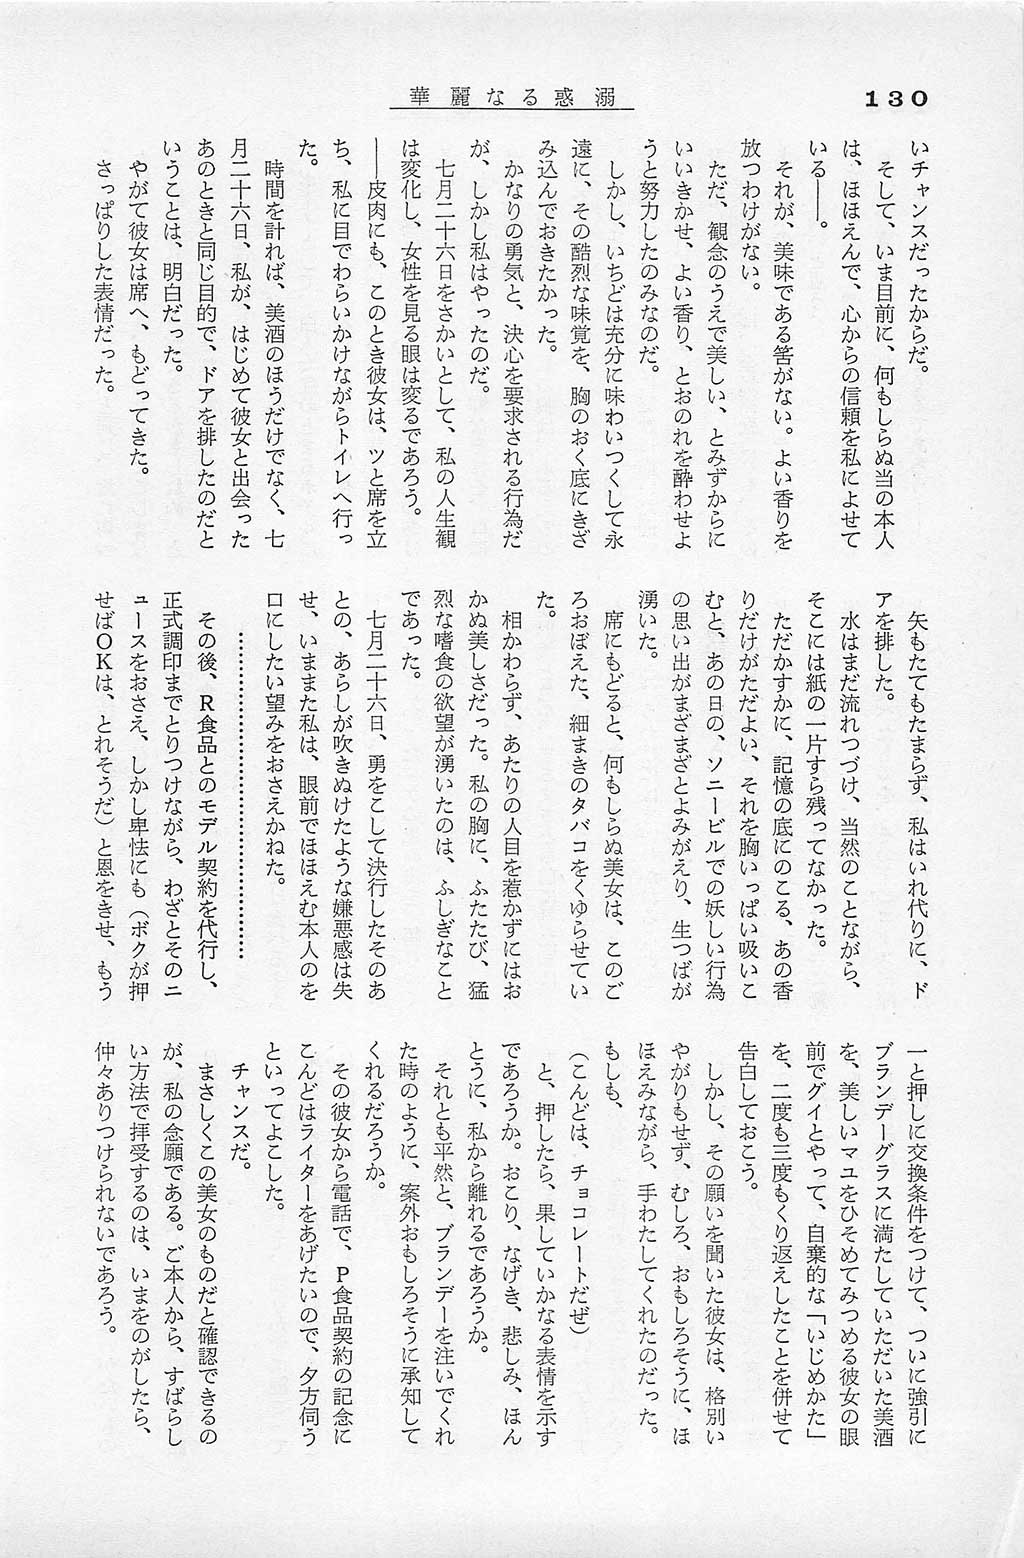 130
華麗なる惑溺
いチャンスだったからだ。
そして、いま目前に、何もしらぬ当の本人
は、ほほえんで、心からの信頼を私によせて
いる――。
それが、美味である筈がない。よい香りを
放つわけがない。
ただ、観念のうえで美しい、とみずからに
いいきかせ、よい香り、とおのれを酔わせよ
うと努力したのみなのだ。
しかし、いちどは充分に味わいつくして永
遠に、その酷烈な味覚を、胸のおく底にきざ
み込んでおきたかった。
かなりの勇気と、決心を要求される行為だ
が、しかし私はやったのだ。
七月二十六日をさかいとして、私の人生観
は変化し、女性を見る眼は変るであろう。
――皮肉にも、このとき彼女は、ツと席を立
ち、私に目でわらいかけながらトイレへ行っ
た。
時間を計れば、美酒のほうだけでなく、七
月二十六日、私が、はじめて彼女と出会った
あのときと同じ目的で、ドアを排したのだと
いうことは、明白だった。
やがて彼女は席へ、もどってきた。
さっぱりした表情だった。
矢もたてもたまらず、私はいれ代りに、ド
アを排した。
水はまだ流れつづけ、当然のことながら、
そこには紙の一片すら残ってなかった。
ただかすかに、記憶の底にのこる、あの香
りだけがただよい、それを胸いっぱい吸いこ
むと、あの日の、ソニービルでの妖しい行為
の思い出がまざまざとよみがえり、生つばが
湧いた。
席にもどると、何もしらぬ美女は、このご
ろおぼえた、細まきのタバコをくゆらせてい
た。
相かわらず、あたりの人目を惹かずにはお
かぬ美しさだった。私の胸に、ふたたび、猛
烈な嗜食の欲望が湧いたのは、ふしぎなこと
であった。
七月二十六日、勇をこして決行したそのあ
との、あらしが吹きぬけたような嫌悪感は失
せ、いままた私は、眼前でほほえむ本人のを
口にしたい望みをおさえかねた。
……………………………
その後、R食品とのモデル契約を代行し、
正式調印までとりつけながら、わざとそのニ
ュースをおさえ、しかし卑怯にも（ボクが押
せばOKは、とれそうだ）と恩をきせ、もう
一と押しに交換条件をつけて、ついに強引に
ブランデーグラスに満たしていただいた美酒
を、美しいマユをひそめてみつめる彼女の眼
前でグイとやって、自棄的な「いじめかた」
を、二度も三度もくり返えしたことを併せて
告白しておこう。
しかし、その願いを聞いた彼女は、格別い
やがりもせず、むしろ、おもしろそうに、ほ
ほえみながら、手わたしてくれたのだった。
もしも、
（こんどは、チョコレートだぜ）
と、押したら、果していかなる表情を示す
であろうか。おこり、なげき、悲しみ、ほん
とうに、私から離れるであろうか。
それとも平然と、ブランデーを注いでくれ
た時のように、案外おもしろそうに承知して
くれるだろうか。
その彼女から電話で、P食品契約の記念に
こんどはライターをあげたいので、夕方伺う
といってよこした。
チャンスだ。
まさしくこの美女のものだと確認できるの
が、私の念願である。ご本人から、すばらし
い方法で拝受するのは、いまをのがしたら、
仲々ありつけられないであろう。